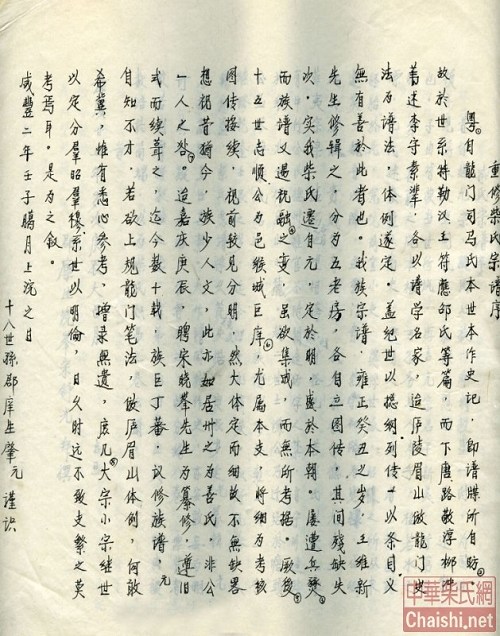 重修柴氏宗谱序
粤①自龍门司马氏本世本作史记,即谱牒所自昉。
故於世系特勒汉王符應邵氏等篇,而下唐路敬淳柳冲
著述李守素輩,各以谱学名家。迨廬陵眉山放龍门史
法为谱法,体例遂定。盖纪世以提纲,列传以条目义
無有善於此者也。我族宗谱,雍正癸丑之岁,王维新
先生修辑之,分为五老房,各自立图传,其间残缺失
次,实我柴氏遷自元,定於明,盛於本朝。屡遭兵燹
而族谱又遇祝融之变,虽欲集成,而無所考据。厥後
十五世志顺公为邑緱城巨庠,尤屬本支,将细为考核
图传接续,视前较见分明,然大体定而细故不無缺畧
想视昔猶今,族少人文,此亦如居卅之为善氏,非公
一人之咎。迨嘉庆庚辰,聘柴晓峯先生为纂修,遵旧
式而续葺之,迄今数十载,族巨丁蕃,议修族谱,元
自知不才,若欲上规龍门笔法,倣庐眉山体例,何敢
希冀,惟有悉心参考,增录熙遗,庶几大宗小宗继世
以定分羣昭羣穆,系世以明倫,日久时远不致支繁之莫
考焉耳。是为之叙。
咸豐二年壬子臈月上浣之日
十八世孫郡庠生肇元谨识
中華柴氏網
Chaishi.net